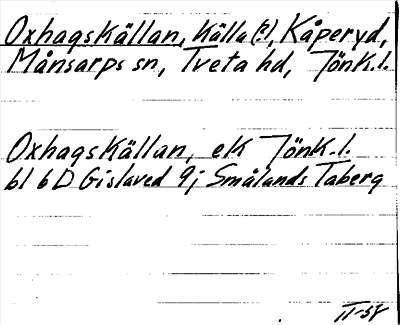 Oxhagskällan, Källa (?), Kåperyd,
Månsarps sn, Tveta hd, Jönk.l.
Oxhagskällan, ek Jönk.l.
bl 6D Gislaved 9j Smålands Taberg
II-58